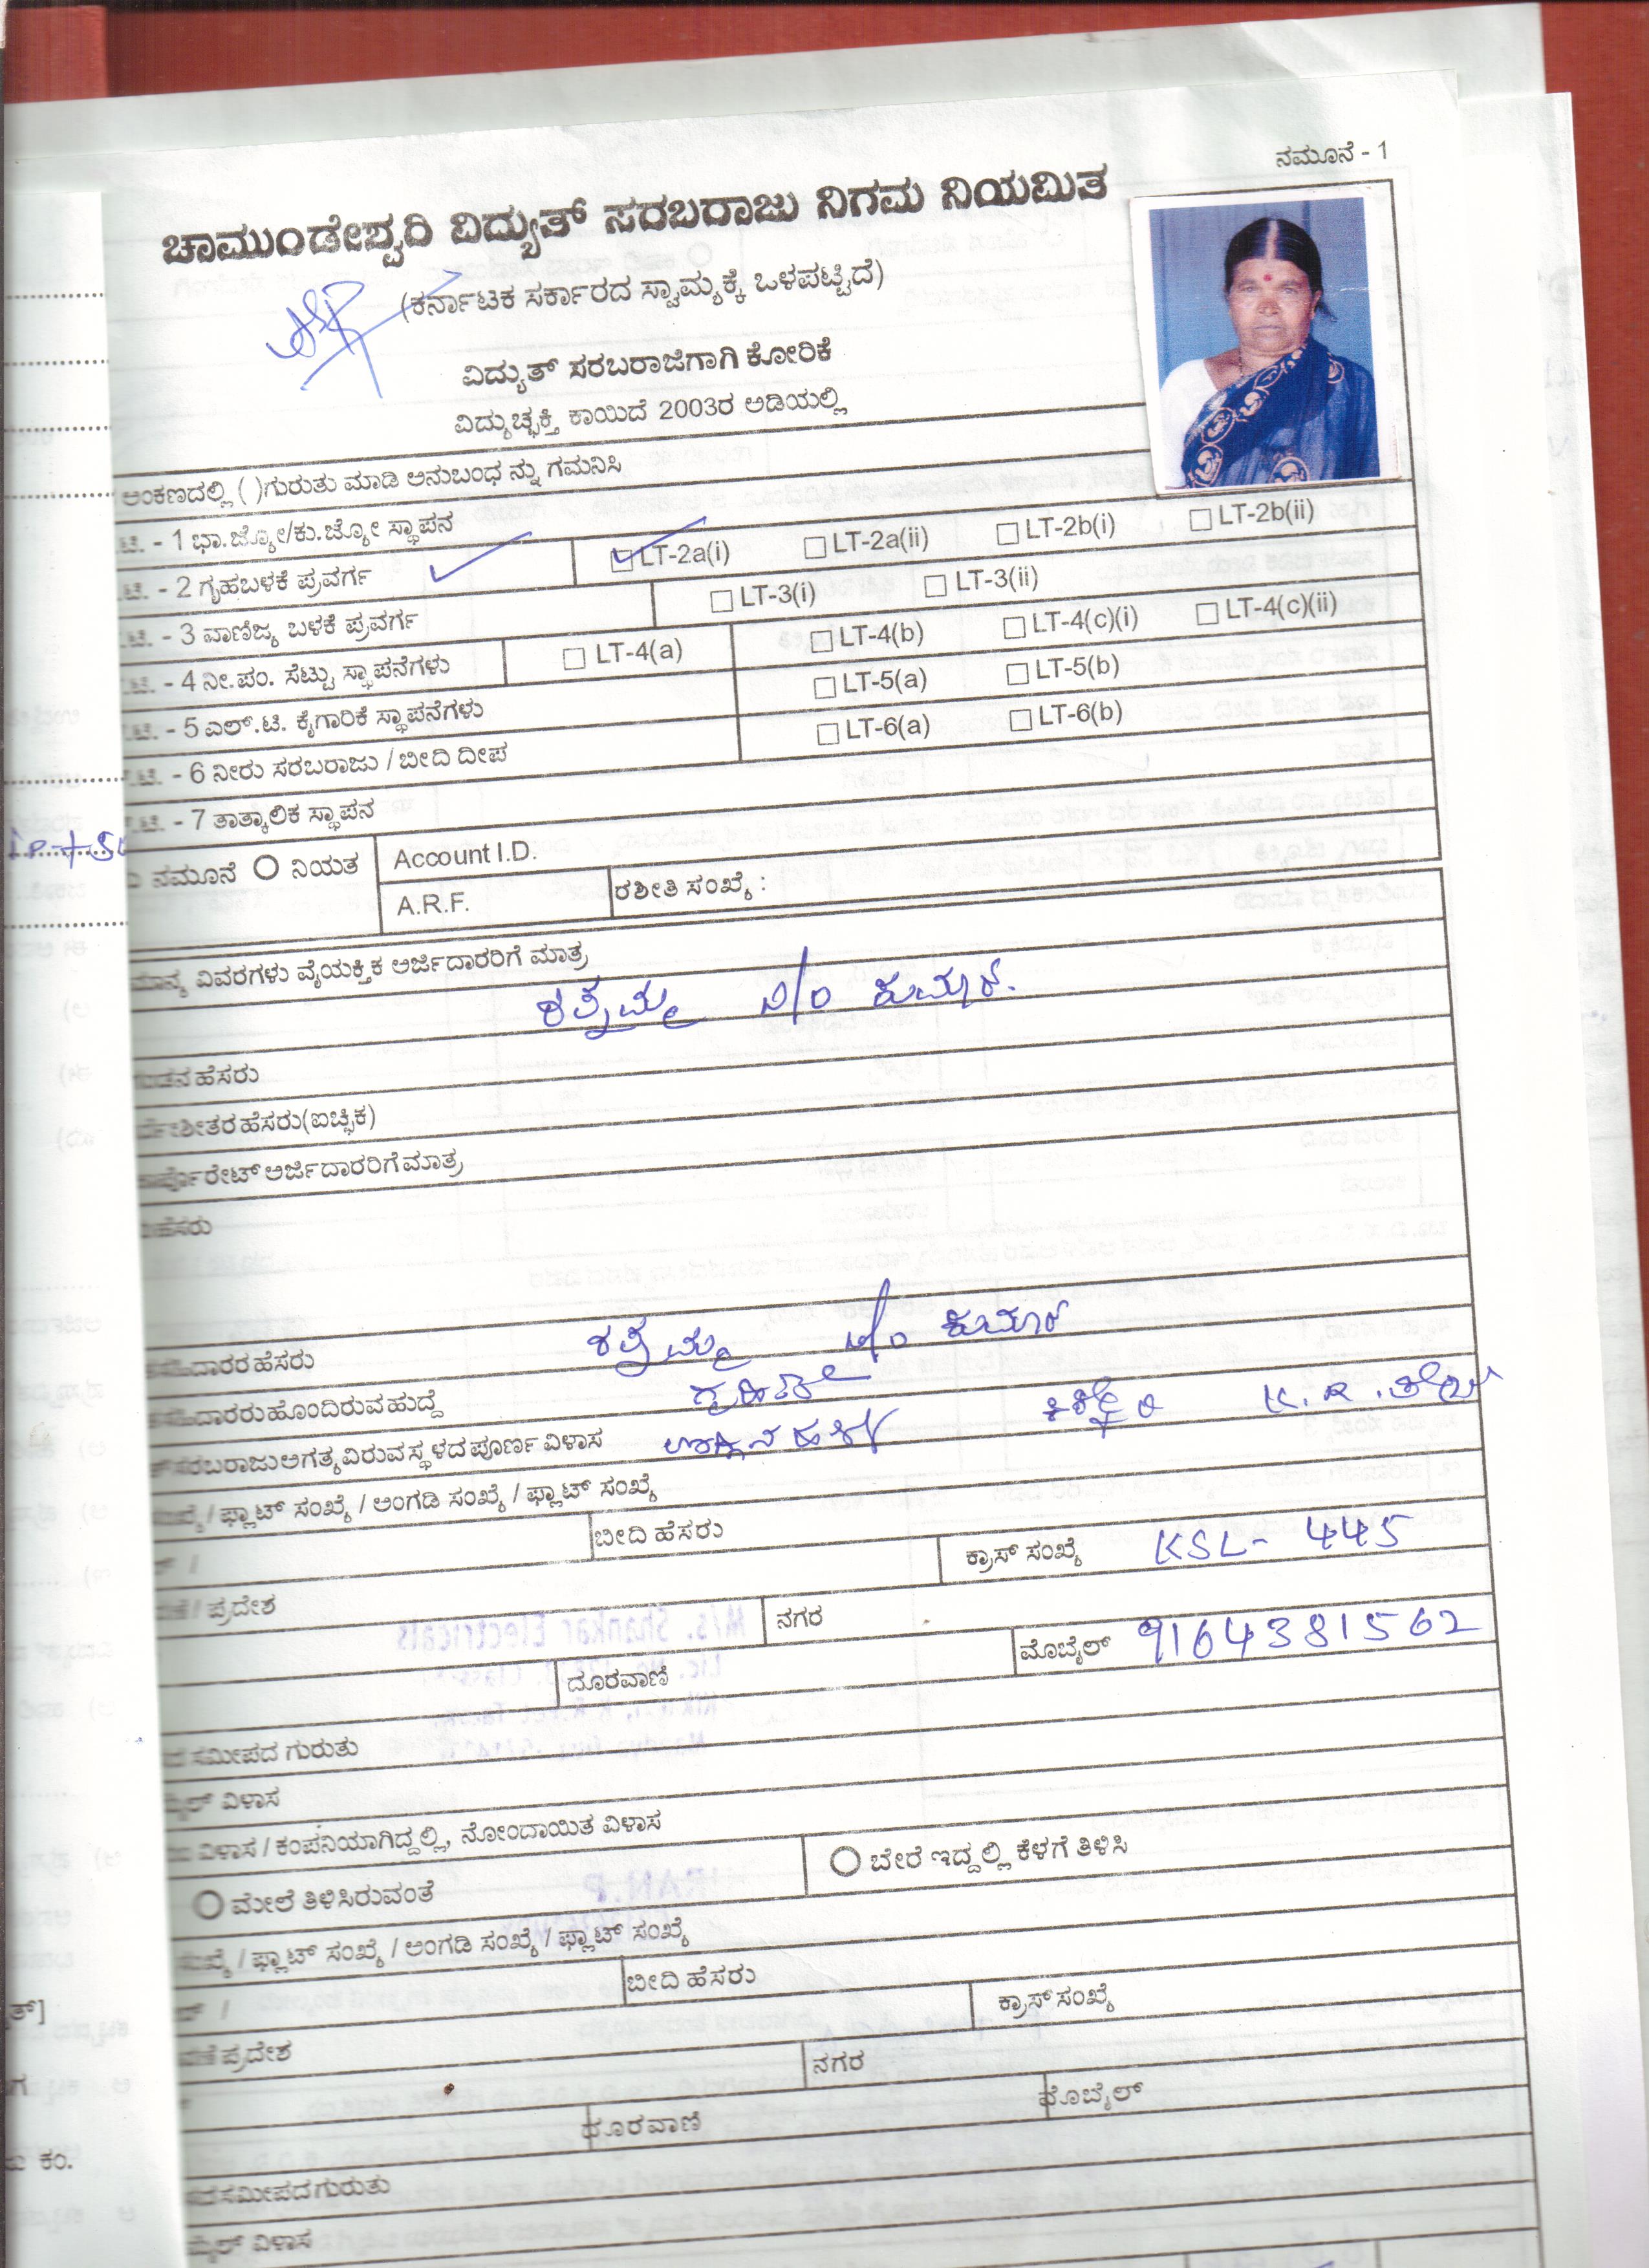 ನಮೂನೆ - 1
ಚಾಮುಂಡೇಶ್ವರಿ ವಿದ್ಯುತ್ ಸರಬರಾಜು ನಿಗಮ ನಿಯಮಿತ
(ಕರ್ನಾಟಕ ಸರ್ಕಾರದ ಸ್ವಾಮ್ಯಕ್ಕೆ ಒಳಪಟ್ಟಿದೆ)
ವಿದ್ಯುತ್ ಸರಬರಾಜಿಗಾಗಿ ಕೋರಿಕೆ
ವಿದ್ಯುಚ್ಛಕ್ತಿ ಕಾಯಿದೆ 2003ರ ಅಡಿಯಲ್ಲಿ
ಅಂಕಣದಲ್ಲಿ ( )ಗುರುತು ಮಾಡಿ ಅನುಬಂಧ ನ್ನು ಗಮನಿಸಿ
.ಟಿ. - 1 ಭಾ.ಜ್ಯೋ/ಕು.ಜ್ಯೋ ಸ್ಥಾಪನ
.ಟಿ. - 2 ಗೃಹಬಳಕೆ ಪ್ರವರ್ಗ LT-2a(i) LT-2a(ii) LT-2b(i) LT-2b(ii)
.ಟಿ. - 3 ವಾಣಿಜ್ಯ ಬಳಕೆ ಪ್ರವರ್ಗ LT-3(i) LT-3(ii)
.ಟಿ. - 4 ನೀ.ಪಂ. ಸೆಟ್ಟು ಸ್ಥಾಪನೆಗಳು LT-4(a) LT-4(b) LT-4(c)(i) LT-4(c)(ii)
.ಟಿ. - 5 ಎಲ್.ಟಿ. ಕೈಗಾರಿಕೆ ಸ್ಥಾಪನೆಗಳು LT-5(a) LT-5(b)
.ಟಿ. - 6 ನೀರು ಸರಬರಾಜು / ಬೀದಿ ದೀಪ LT-6(a) LT-6(b)
.ಟಿ. - 7 ತಾತ್ಕಾಲಿಕ ಸ್ಥಾಪನ
ನಮೂನೆ ನಿಯತ Account I.D.
A.R.F. ರಶೀತಿ ಸಂಖ್ಯೆ :
ವಿವರಗಳು ವೈಯಕ್ತಿಕ ಅರ್ಜಿದಾರರಿಗೆ ಮಾತ್ರ
ರತ್ನಮ್ಮ ಕುಮಾರ್.
ಹೆಸರು
ಹೆಸರು(ಐಚ್ಛಿಕ)
ಅರ್ಜಿದಾರರಿಗೆ ಮಾತ್ರ
ಹೆಸರು
ದಾರರ ಹೆಸರು ರತ್ನಮ್ಮ ಕುಮಾರ್
ದಾರರು ಹೊಂದಿರುವ ಹುದ್ದೆ
ಸರಬರಾಜು ಅಗತ್ಯವಿರುವ ಸ್ಥಳದ ಪೂರ್ಣ ವಿಳಾಸ
/ ಫ್ಲಾಟ್ ಸಂಖ್ಯೆ / ಅಂಗಡಿ ಸಂಖ್ಯೆ / ಫ್ಲಾಟ್ ಸಂಖ್ಯೆ
/ ಬೀದಿ ಹೆಸರು ಕ್ರಾಸ್ ಸಂಖ್ಯೆ KSL- 445
/ ಪ್ರದೇಶ ನಗರ
ದೂರವಾಣಿ ಮೊಬೈಲ್ 9164381562
ಸಮೀಪದ ಗುರುತು
ವಿಳಾಸ
ವಿಳಾಸ / ಕಂಪನಿಯಾಗಿದ್ದಲ್ಲಿ, ನೋಂದಾಯಿತ ವಿಳಾಸ
ಮೇಲೆ ತಿಳಿಸಿರುವಂತೆ ಬೇರೆ ಇದ್ದಲ್ಲಿ ಕೆಳಗೆ ತಿಳಿಸಿ
/ ಫ್ಲಾಟ್ ಸಂಖ್ಯೆ / ಅಂಗಡಿ ಸಂಖ್ಯೆ / ಫ್ಲಾಟ್ ಸಂಖ್ಯೆ
/ ಬೀದಿ ಹೆಸರು ಕ್ರಾಸ್ ಸಂಖ್ಯೆ
ಪ್ರದೇಶ ನಗರ
ದೂರವಾಣಿ ಮೊಬೈಲ್
ಸಮೀಪದ ಗುರುತು
ವಿಳಾಸ